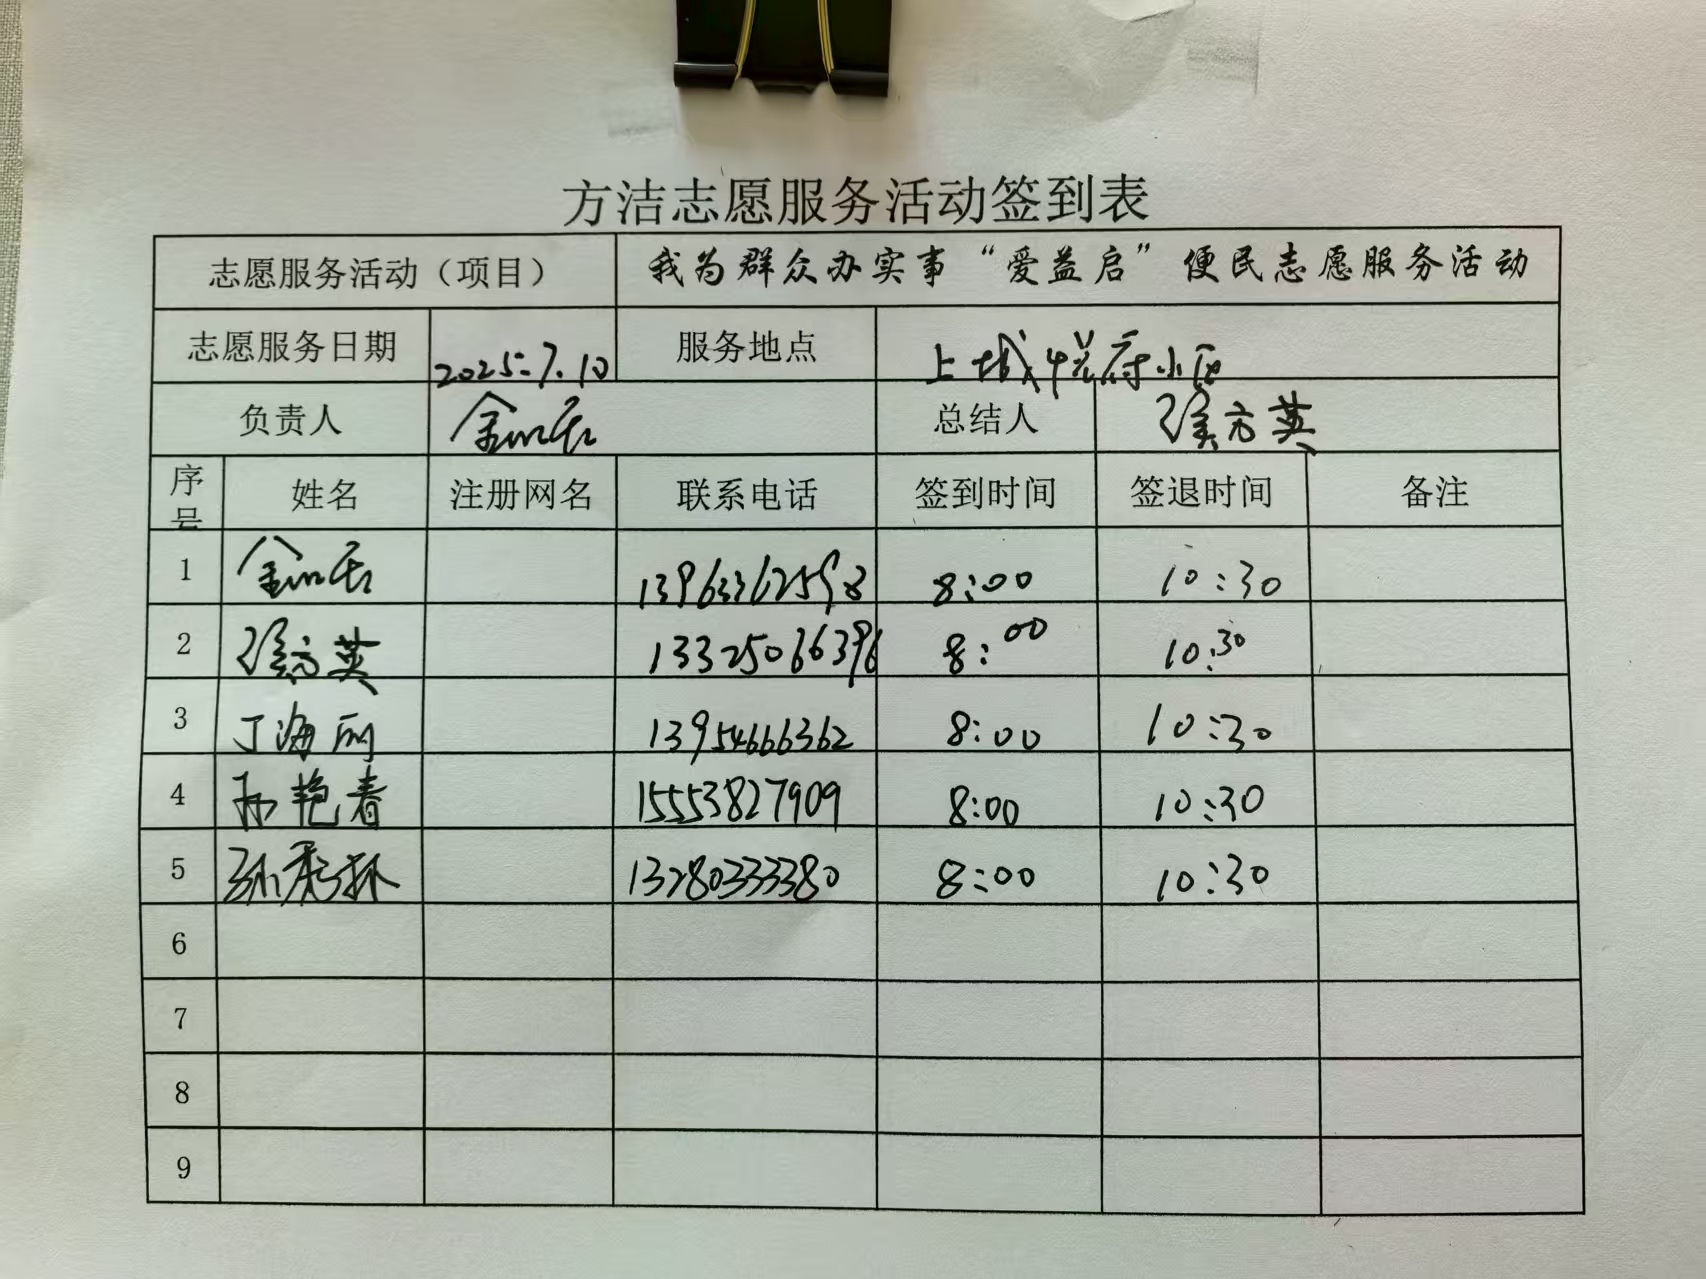 方洁志愿服务活动签到表
志愿服务活动（项目） 我为群众办实事“爱益启”便民志愿服务活动
志愿服务日期 2025.7.10 服务地点 上城悦府小区
负责人 总结人 徐方英
序号 姓名 注册网名 联系电话 签到时间 签退时间 备注
1 13963362598 8:00 10:30
2 徐方英 13325066396 8:00 10:30
3 丁海丽 13954666362 8:00 10:30
4 孙艳春 15553827909 8:00 10:30
5 孙秀林 13280333380 8:00 10:30
6
7
8
9